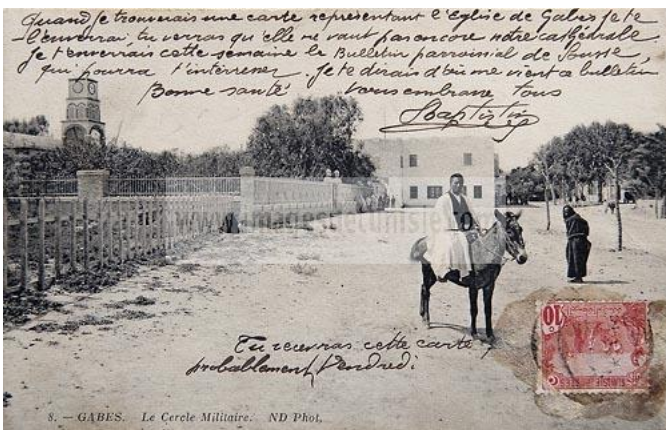 Quand je trouverais une carte représentant l'Eglise de Gabès je te
l'enverrai, tu verras qu'elle ne vaut pas encore notre cathédrale.
Je t'enverrais cette semaine le Bulletin paroissial de Sousse,
qui pourra t'intérresser. Je te dirais d'où me vient ce bulletin
Bonne santé vous embrasse tous
Baptistin
www.imagesdetunisie.com
Tu recevras cette carte
probablement Vendredi
10
8. — GABES. Le Cercle Militaire. ND Phot.